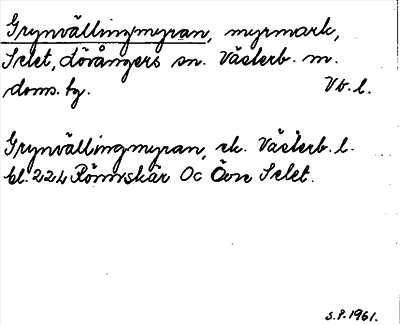 Grynvällingmyran, myrmark,
Selet, Lövångers sn. Västerb. m.
doms. hg. Vb. l.
Grynvällingmyran, ek. Västerb. l.
bl. 224 Rönnskär Oc Övre Selet.
S.P. 1961.